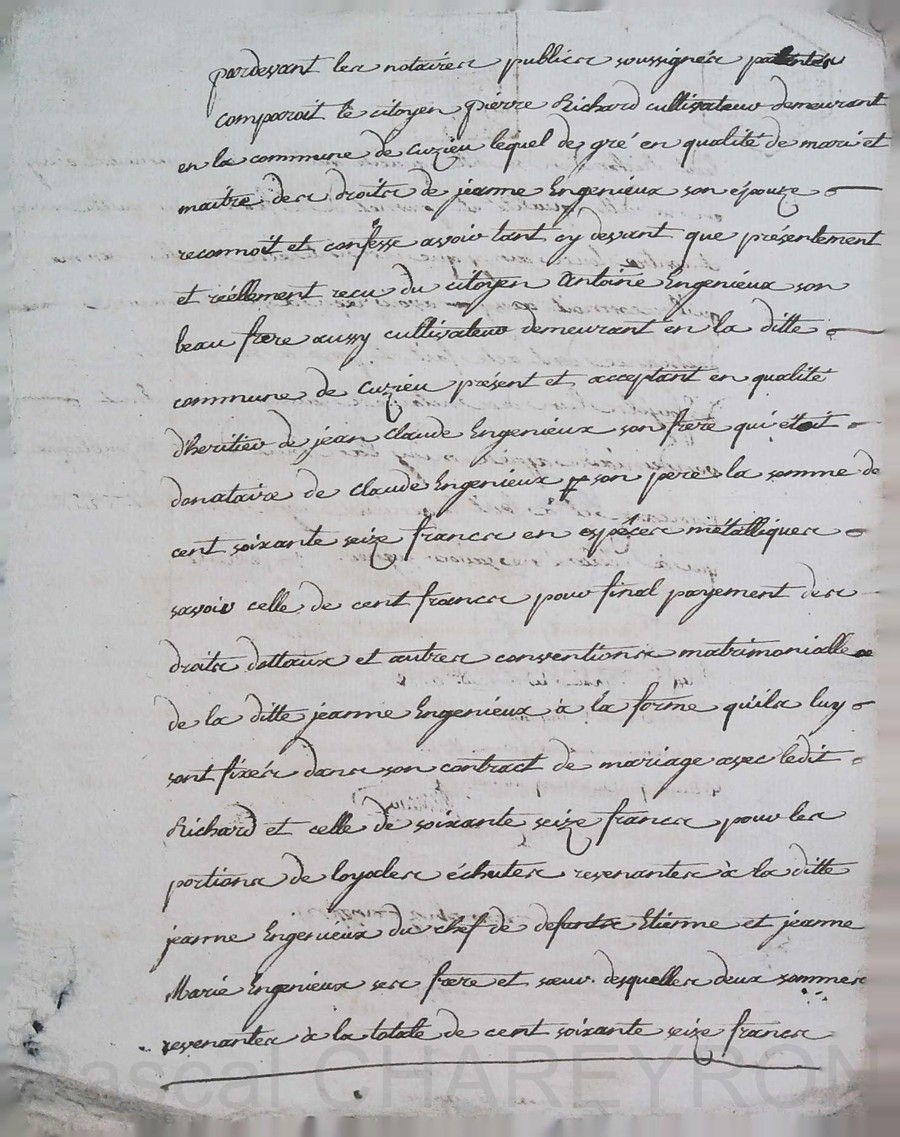 pardevant les notaires publics soussignés patentés
comparoit le citoyen pierre Richard cultivateur demeurant
en la commune de Cuzieu lequel de gré en qualité de mari et
maitre des droits de jeanne Engenieux son épouze
reconnoit et confesse avoir tant cy devant que présentement
et réellement recu du citoyen Antoine Engenieux son
beau frere aussy cultivateur demeurant en la ditte
commune de Cuzieu présent et acceptant en qualité
d'heritier de jean Claude Engenieux son frere qui etoit
donataire de Claude Engenieux son pere la somme de
cent soixante seize francs en espéces métalliques
savoir celle de cent francs pour final payement des
droits dottaux et autres conventions matrimonialles
de la ditte jeanne Engenieux à la forme qu'ils luy
sont fixés dans son contract de mariage avec ledit
Richard et celle de soixante seize francs pour les
portions de loyales échutes revenantes à la ditte
jeanne Engenieux du chef de defunts Etienne et jeanne
Marie Engenieux ses frere et sœur desquelles deux sommes
revenantes à la totale de cent soixante seize francs
Pascal CHAREYRON